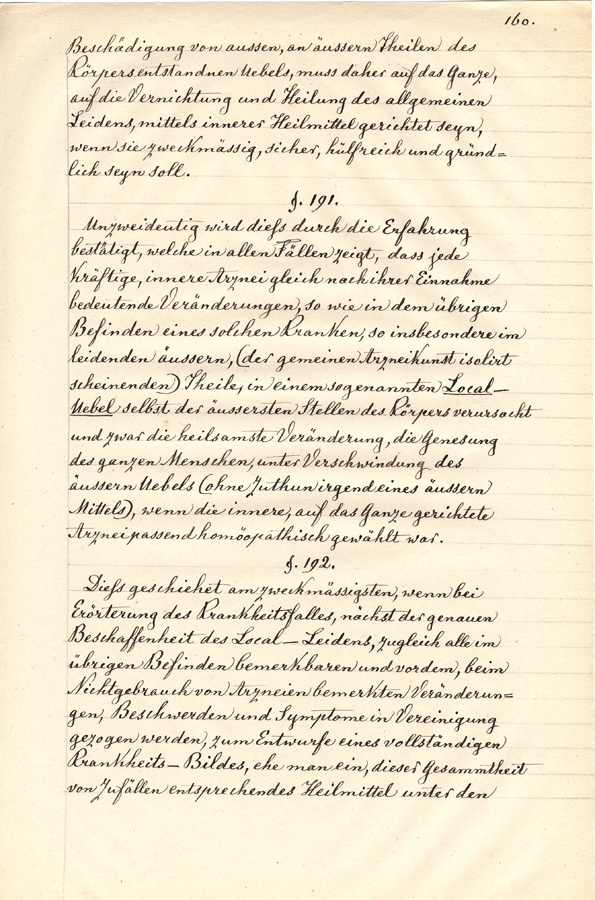 160.
Beschädigung von aussen, an äussern Theilen des
Körpers entstandnen Uebels, muss daher auf das Ganze,
auf die Vernichtung und Heilung des allgemeinen
Leidens, mittels innerer Heilmittel gerichtet seyn,
wenn sie zweckmässig, sicher, hülfreich und gründ=
lich seyn soll.
§. 191.
Unzweideutig wird diess durch die Erfahrung
bestätigt, welche in allen Fällen zeigt, dass jede
kräftige, innere Arznei gleich nach ihrer Einnahme
bedeutende Veränderungen, so wie in dem übrigen
Befinden eines solchen Kranken, so insbesondere im
leidenden äussern, (der gemeinen Arzneikunst isolirt
scheinenden) Theile, in einem sogenannten Local—
Uebel selbst der äussersten Stellen des Körpers verursacht
und zwar die heilsamste Veränderung, die Genesung
des ganzen Menschen, unter Verschwindung des
äussern Uebels (ohne Zuthun irgend eines äussern
Mittels), wenn die innere, auf das Ganze gerichtete
Arznei passend homöopathisch gewählt war.
§. 192.
Diess geschiehet am zweckmässigsten, wenn bei
Erörterung des Krankheitsfalles, nächst der genauen
Beschaffenheit des Local—Leidens, zugleich alle im
übrigen Befinden bemerkbaren und vordem, beim
Nichtgebrauch von Arzneien bemerkten Veränderun=
gen, Beschwerden und Symptome in Vereinigung
gezogen werden, zum Entwurfe eines vollständigen
Krankheits—Bildes, ehe man ein, dieser Gesammtheit
von Zufällen entsprechendes Heilmittel unter den